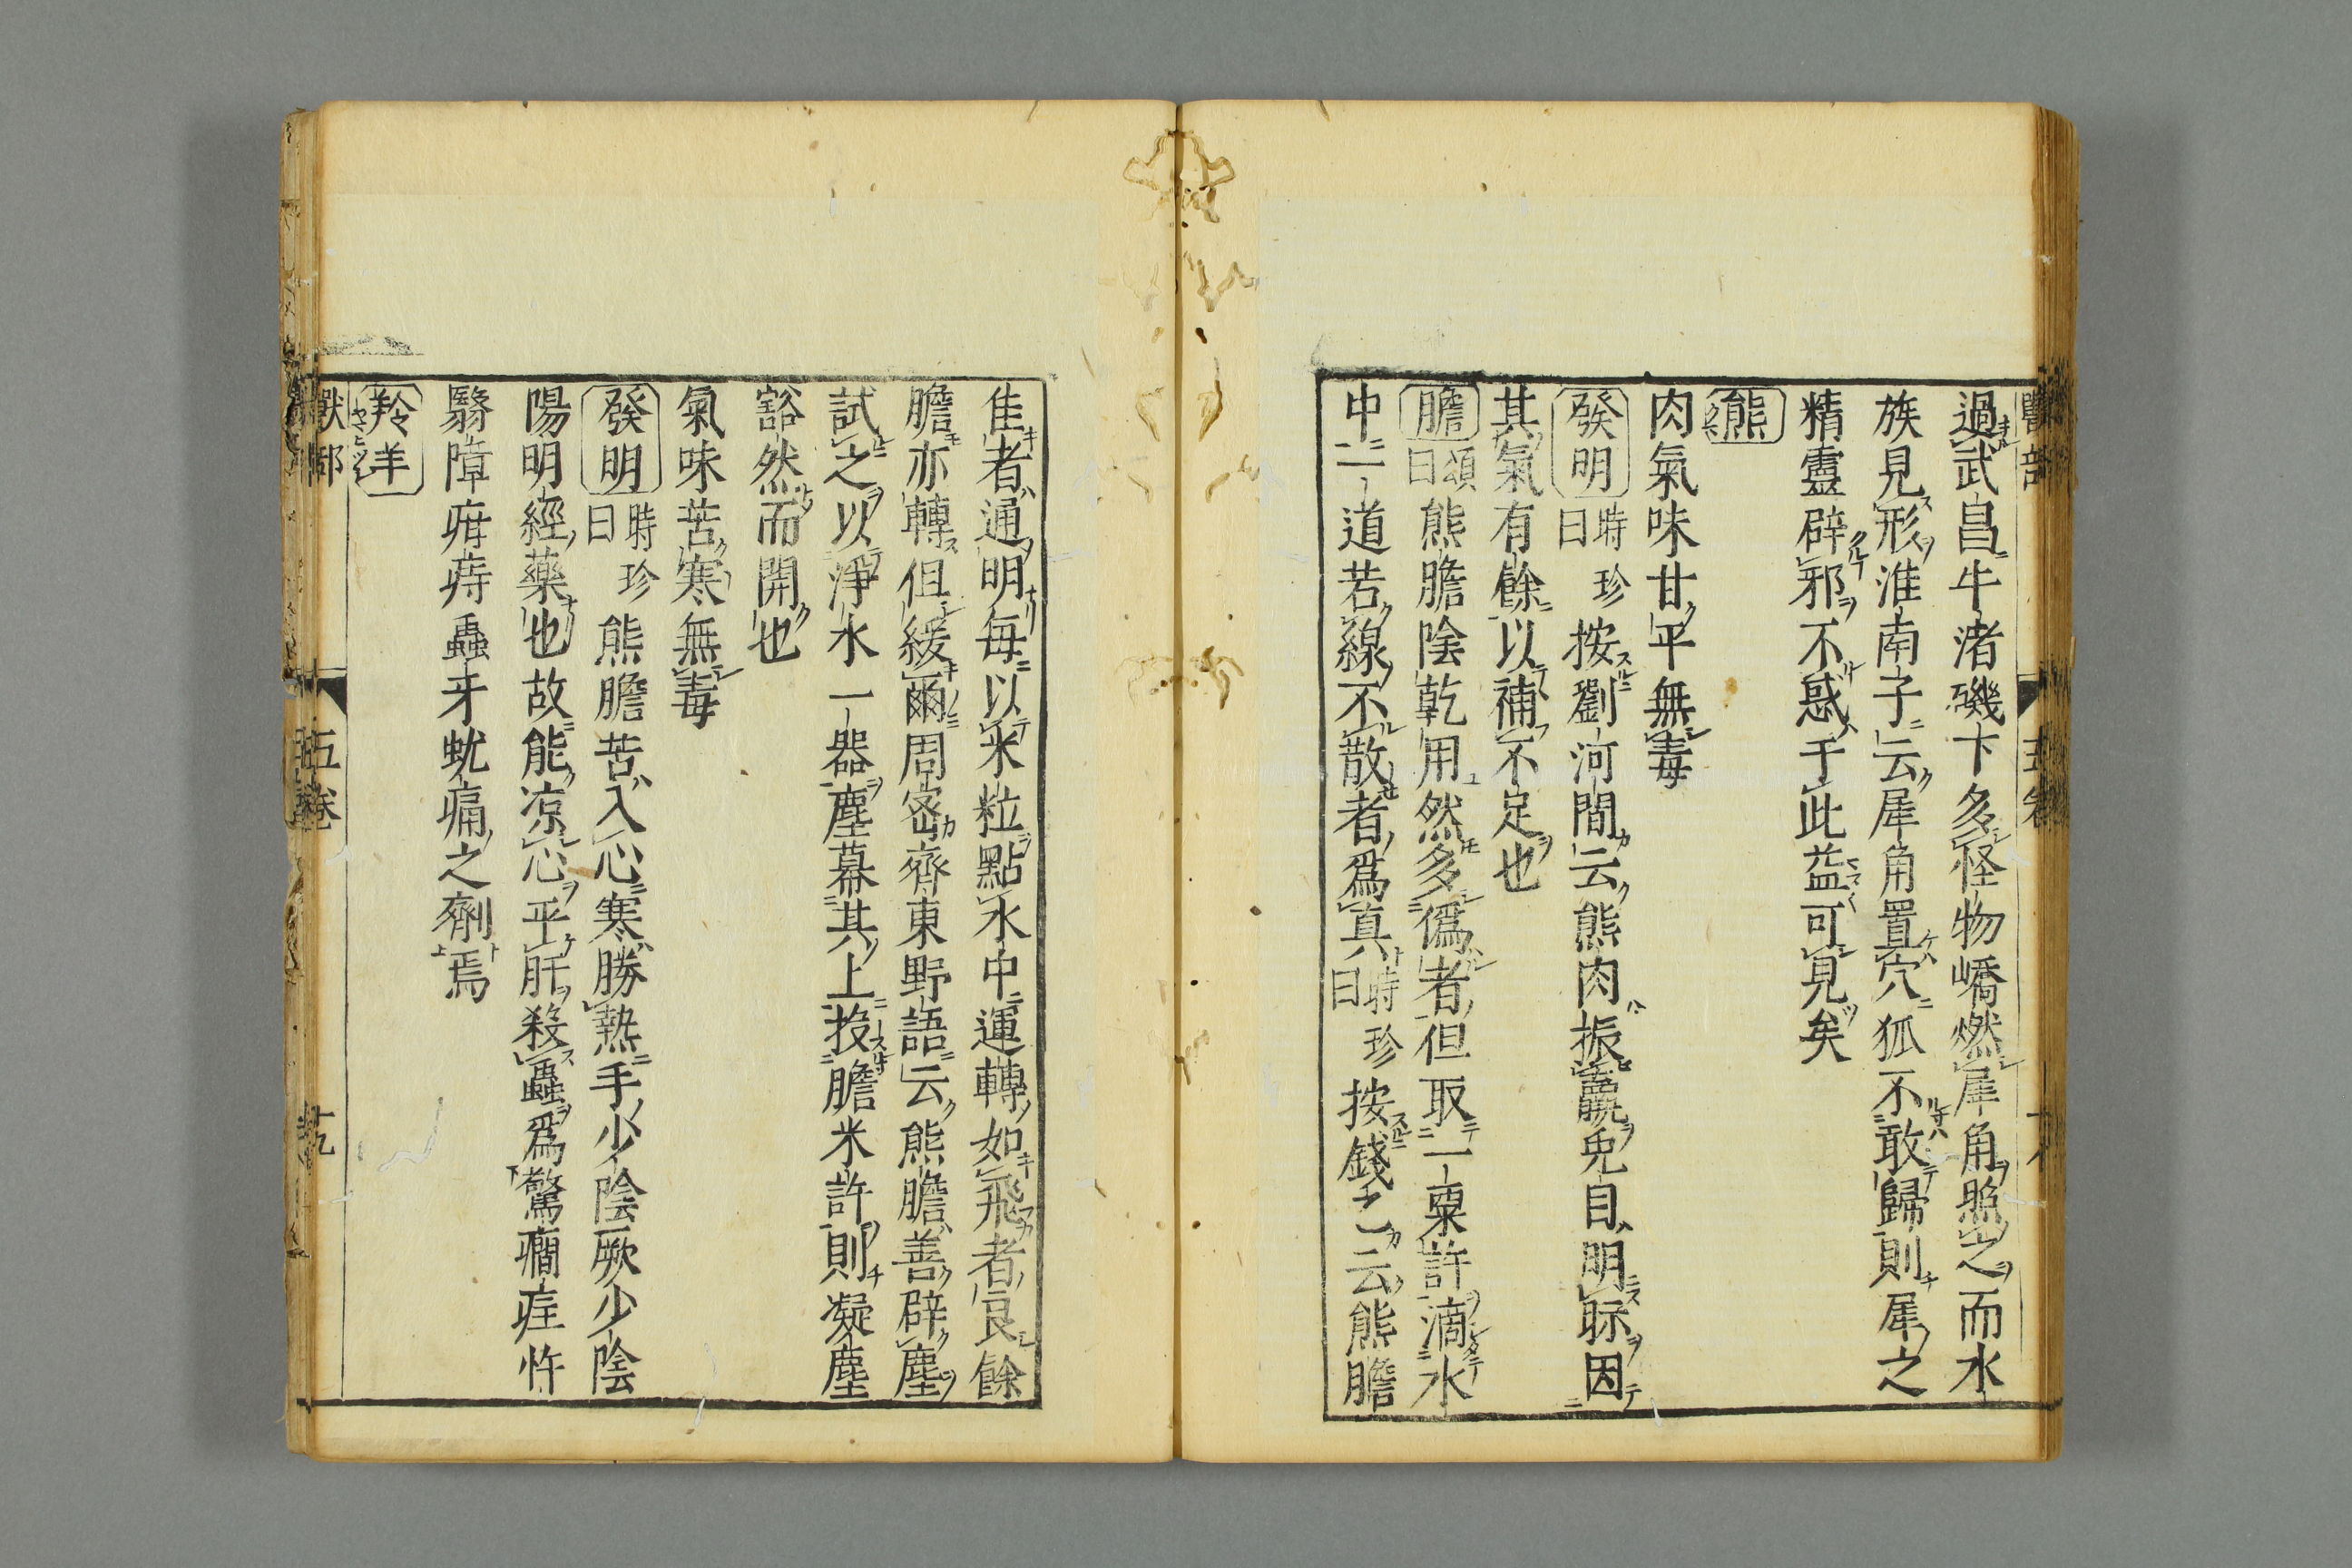 過武昌牛渚磯下多怪物嶠燃犀角照之而水
族見形淮南子云犀角置穴狐不敢歸則犀之
精靈辟邪不惑于此益可見矣
熊
肉氣味甘平無毒
發明時珍曰按劉河間云熊肉振羸兎目明眎因
其氣有餘以補不足也
膽頌曰熊膽陰乾用然多僞者但取一粟許滴水
中一道若線不散者爲真時珍曰按錢乙云熊膽
佳者通明毎以米粒點水中運轉如飛者良餘
膽亦轉但緩爾周密齊東野語云熊膽善辟塵
試之以淨水一器塵幕其上投膽米許則凝塵
豁然而開也
氣味苦寒無毒
發明時珍曰熊膽苦入心寒勝熱手少陰厥少陰
陽明經藥也故能凉心平肝殺蟲爲驚癇疰忤
翳障疳痔蟲牙蚘痛之劑焉
羚羊
獸部 五卷 十九